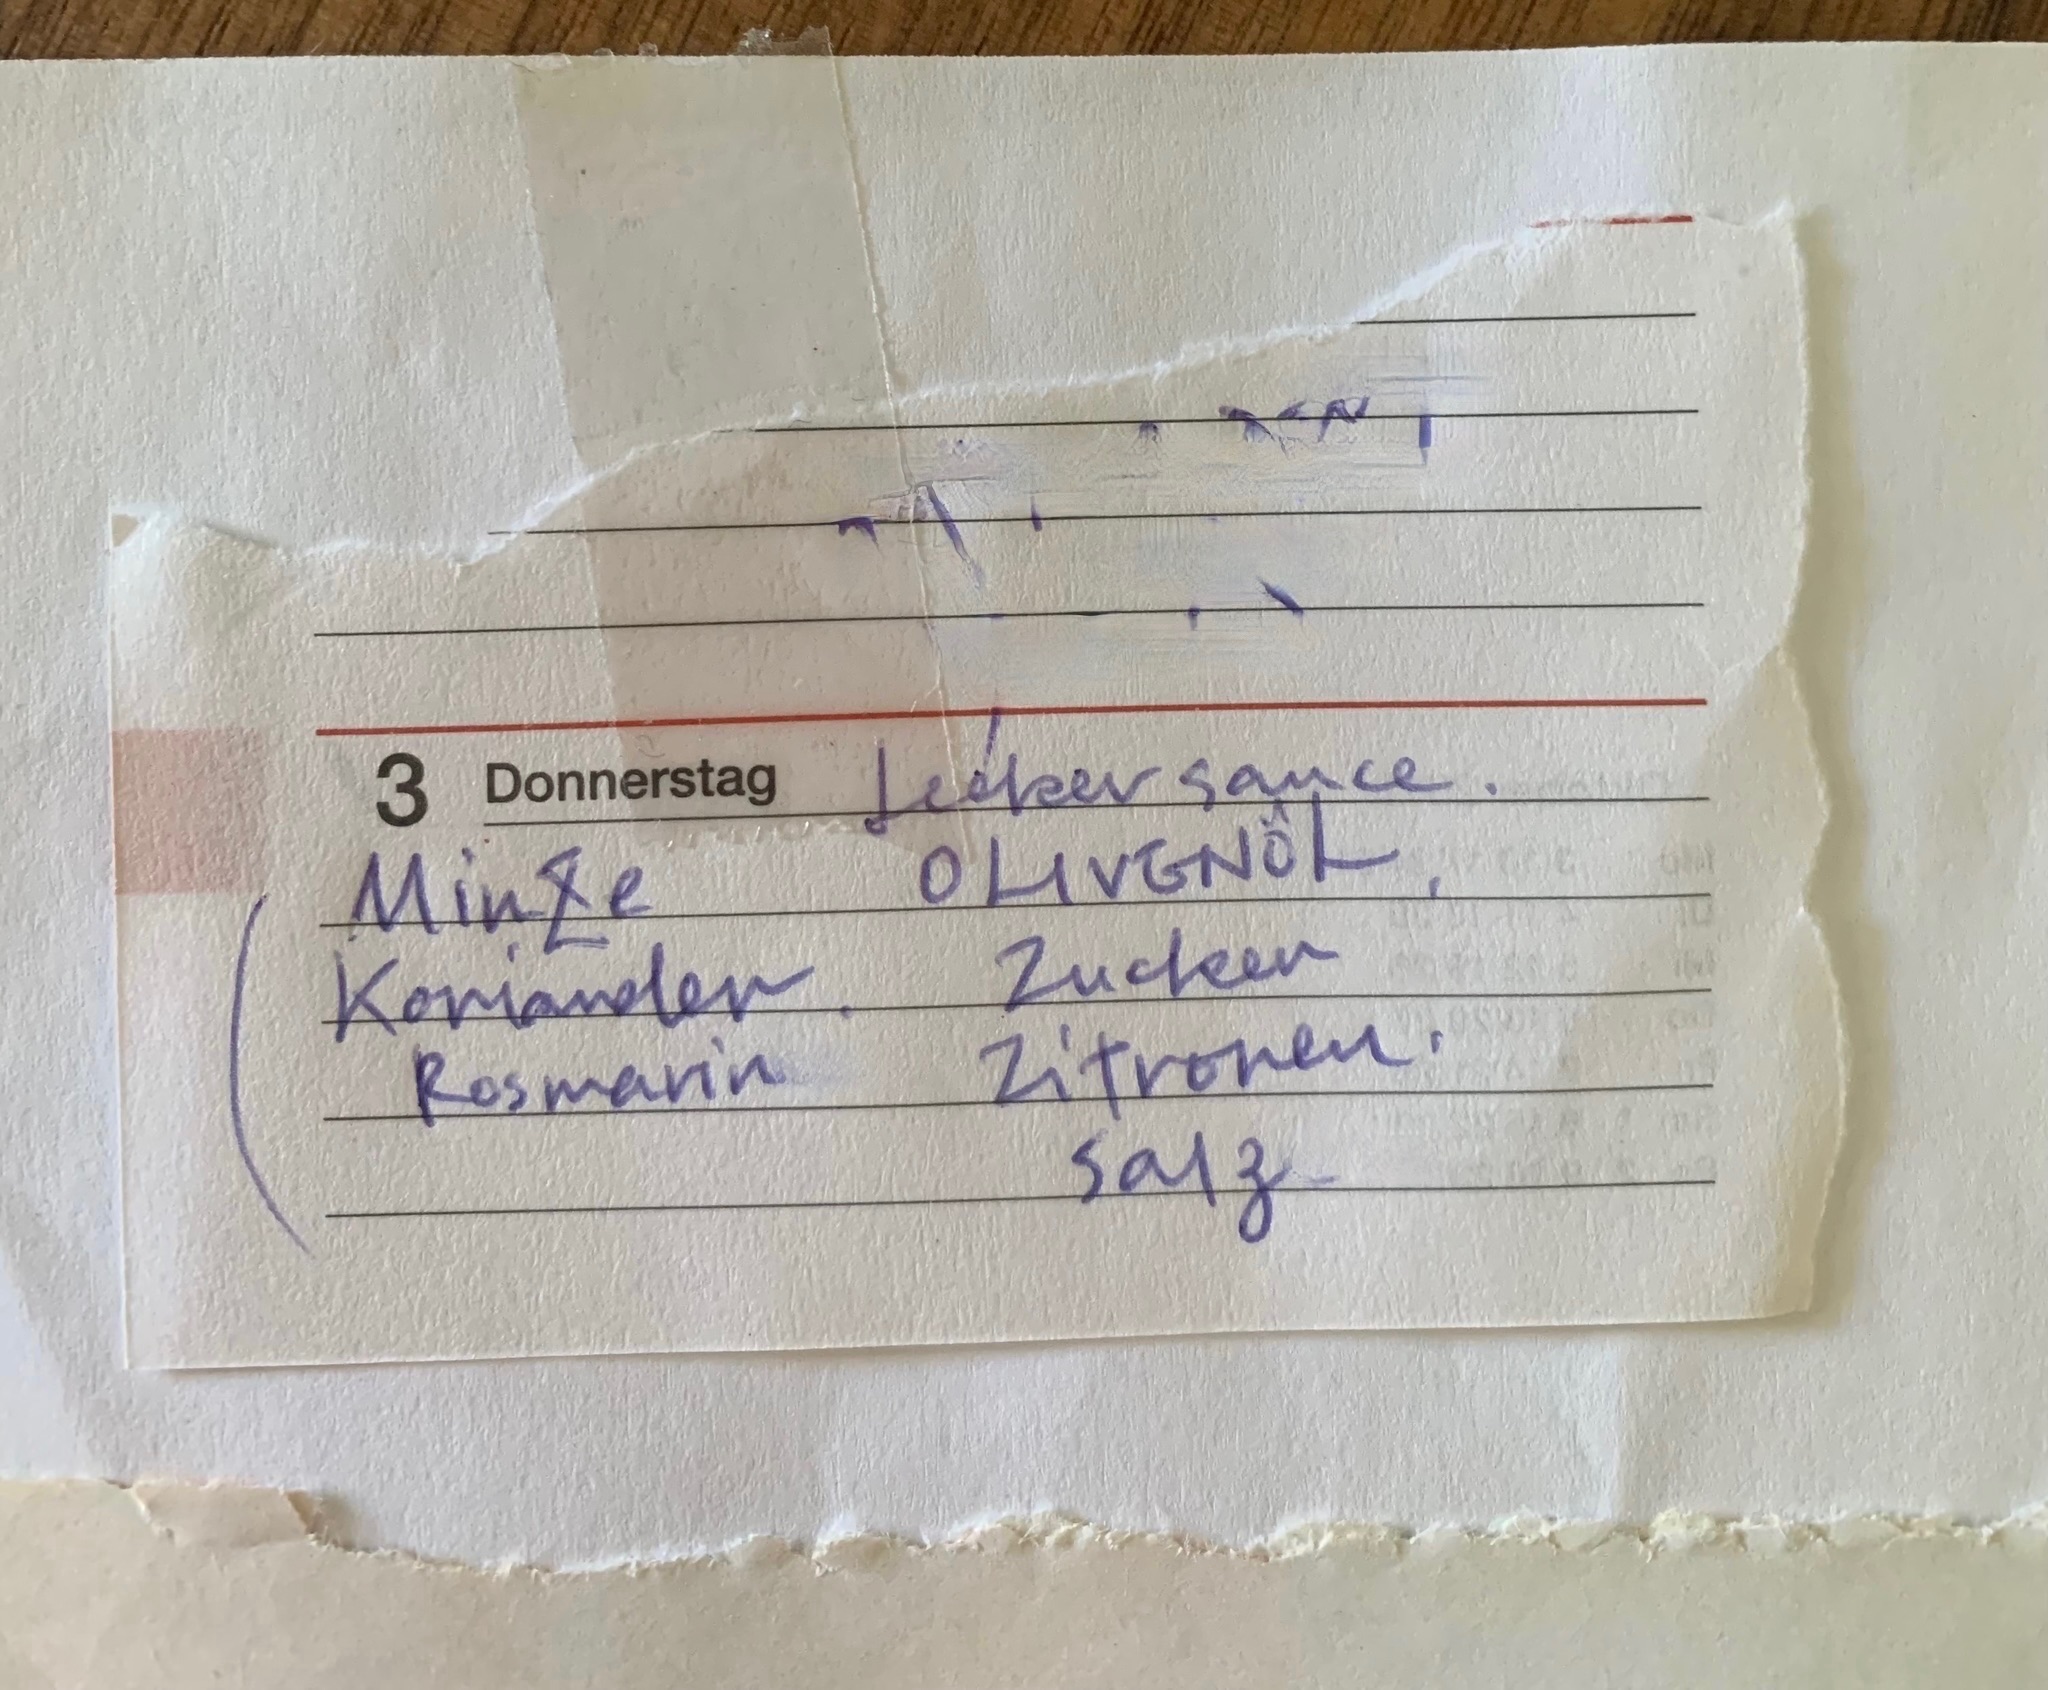 3 Donnerstag Lecker sauce.
Minze OLIVENÖL,
Koriander. Zucker
Rosmarin Zitronen.
Salz